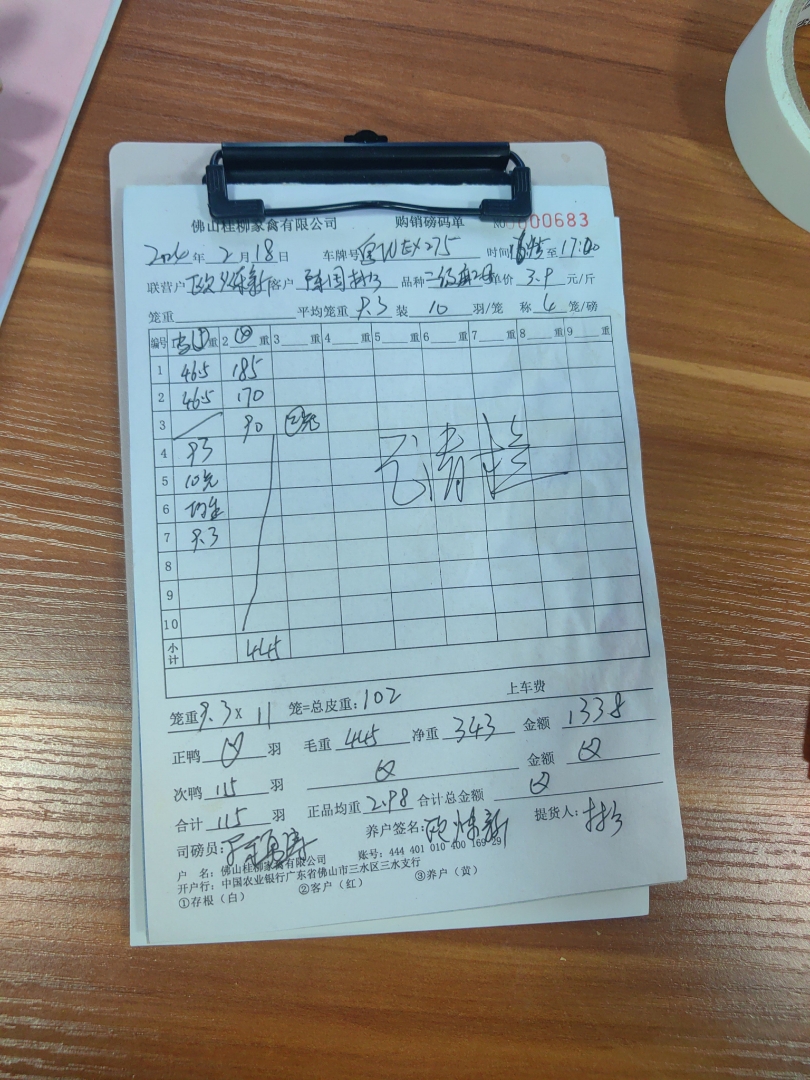 佛山桂柳家禽有限公司 购销磅码单 NO 0000683
2024年2月18日 车牌号 WEX275 时间 至17:00
联营户 欧 新 客户 陈国 品种 二级 单价 3.9 元/斤
笼重 平均笼重 9.3 装 10 羽/笼 称 4 笼/磅
编号 1 重 2 重 3 重 4 重 5 重 6 重 7 重 8 重 9 重
1 46.5 185
2 46.5 170
3 90
4 93
5 10
6
7 9.3
8
9
10
小计 445
笼重 9.3 x 11 笼=总皮重:102 上车费
正鸭 羽 毛重 445 净重 343 金额 1338
次鸭 115 羽 金额
合计 115 羽 正品均重 2.98 合计总金额
司磅员: 养户签名: 欧 新 提货人:
户 名:佛山桂柳家禽有限公司 账号:444 401 010 400 169 29
开户行:中国农业银行广东省佛山市三水区三水支行
①存根(白) ②客户(红) ③养户(黄)